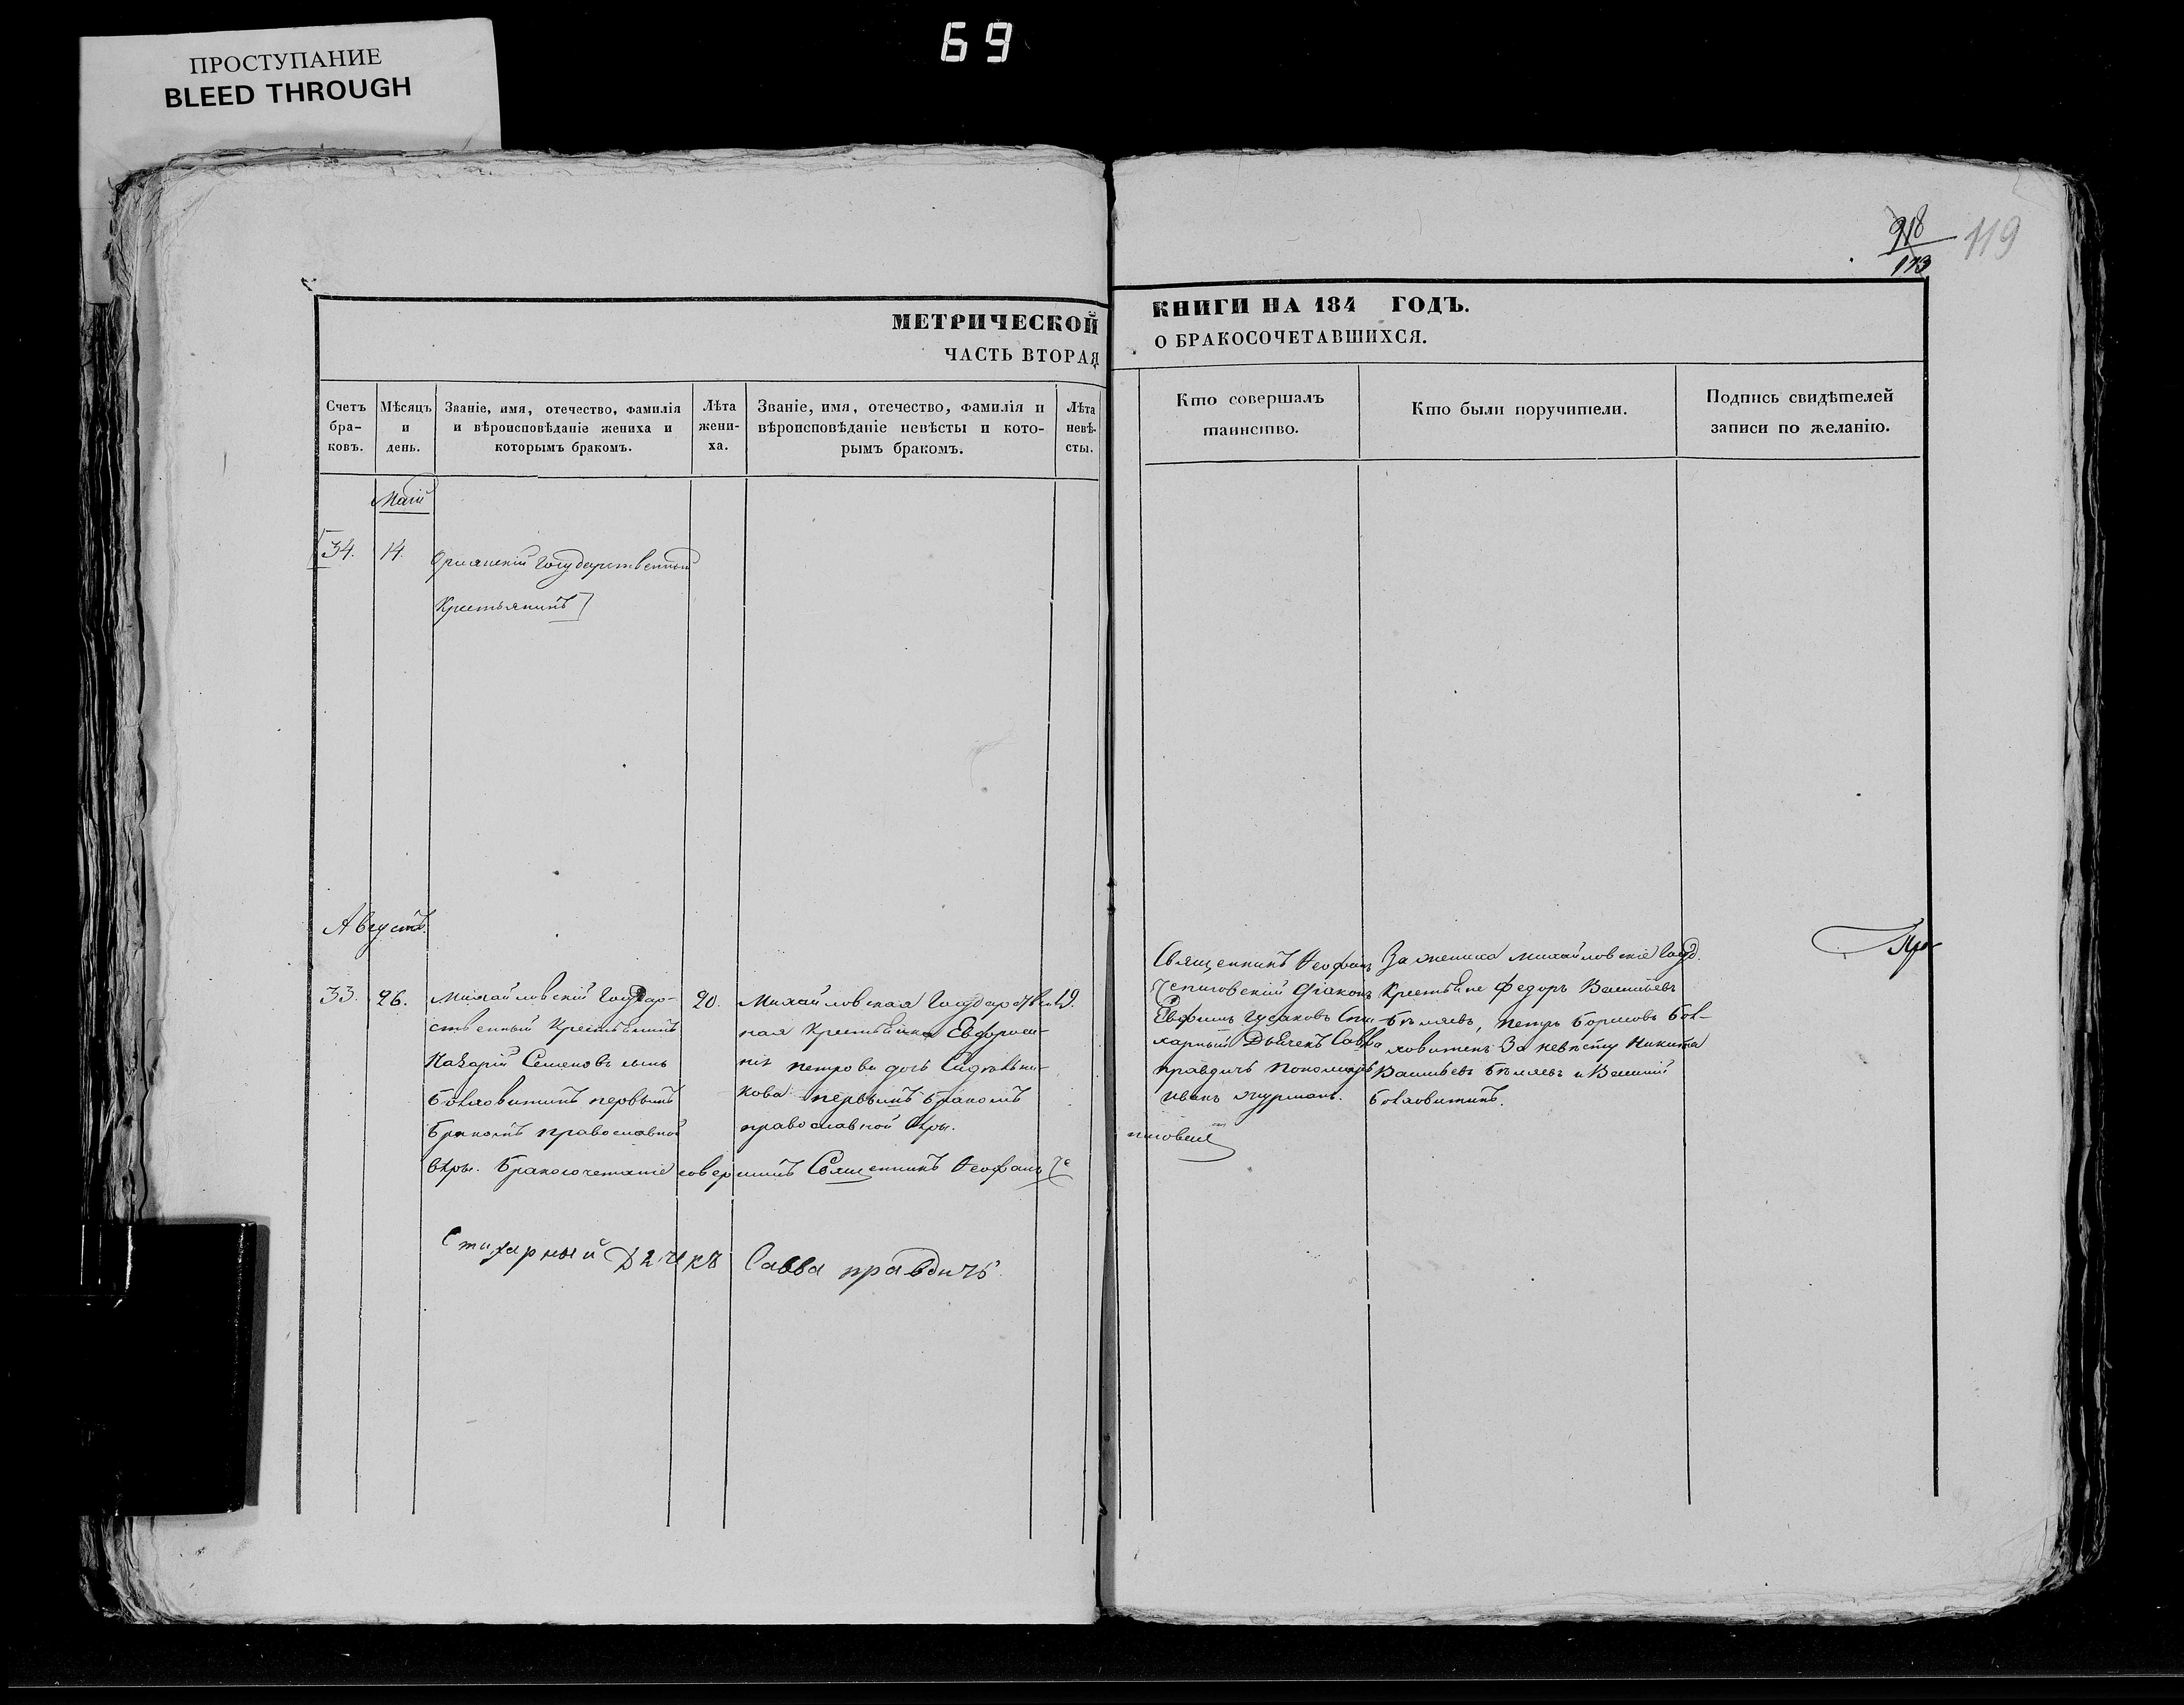 69
ПРОСТУПАНИЕ
BLEED THROUGH
918
119
МЕТРИЧЕСКОЙ
ЧАСТЬ ВТОРАЯ
КНИГИ НА 184 ГОДЪ.
О БРАКОСОЧЕТАВШИХСЯ.
Счетъ бра- ковъ.
Мѣсяцъ и день.
Званіе, имя, отечество, фамилія и вѣроисповѣданіе жениха и которымъ бракомъ.
Лѣта жени- ха.
Званіе, имя, отечество, фамилія и вѣроисповѣданіе невѣсты и кото- рымъ бракомъ.
Лѣта невѣ- сты.
Кто совершалъ таинство.
Кто были поручители.
Подпись свидѣтелей записи по желанію.
Маій
34. 14. Государственный
Крестьянинъ
Августъ.
33. 26.
Михайловскій Государ-
ственный Крестьянинъ
Назарій Семеновъ сынъ
первымъ
бракомъ православной
вѣры. Бракосочетаніе совершилъ Священникъ Феофанъ Че
20.
Михайловская Государствен
ная Крестьянка Евфроси-
нія петрова дочь Сидѣльни-
кова первымъ бракомъ
православной вѣры.
19.
Священникъ Феофанъ
Черниговскій Діаконъ
Евфимъ Гусаковъ Сти
харный Дьячекъ Савва
правдичъ пономарь
иванъ
За жениха михайловскіе Госуд.
Крестьяне Федоръ Васильевъ
Бѣляевъ, петръ Борисовъ
За невѣсту Никита
Васильевъ Бѣляевъ и Василій
Стихарный Дячкъ Савва правдичъ